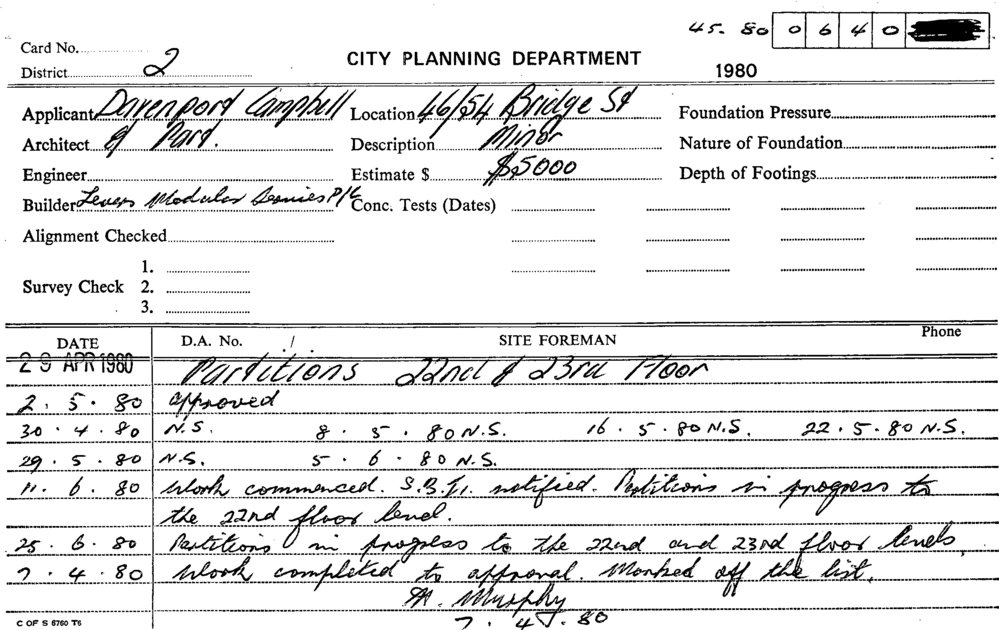 45. 80 0 6 4 0
Card No.
District 2
CITY PLANNING DEPARTMENT
1980
Applicant Davenport Campbell
Location 46/54 Bridge St
Foundation Pressure
Architect & Part.
Description Minor
Nature of Foundation
Engineer
Estimate $ $5000
Depth of Footings
Builder Levers Modular P/L
Conc. Tests (Dates)
Alignment Checked
Survey Check
1.
2.
3.
DATE D.A. No. / SITE FOREMAN Phone
29 APR 1980 Partitions 22nd & 23rd Floor
2. 5. 80 approved
30. 4. 80 N.S. 8. 5. 80 N.S. 16. 5. 80 N.S. 22. 5. 80 N.S.
29. 5. 80 N.S. 5. 6. 80 N.S.
11. 6. 80 Work commenced. notified. Partitions in progress to
the 22nd floor level.
25. 6. 80 Partitions in progress to the 22nd and 23rd floor levels.
7. 4. 80 Work completed to approval. Marked off the list.
Murphy
7. 4. 80
C OF S 6760 T6